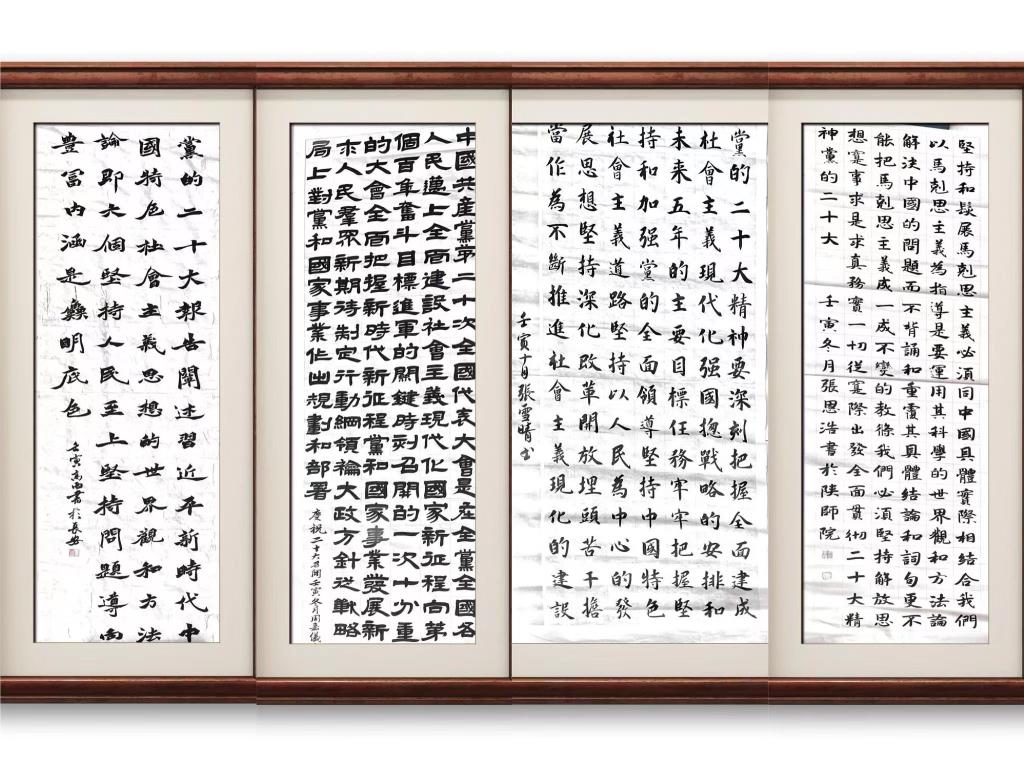 黨的二十大報告闡述習近平新時代中
國特色社會主義思想的世界觀和方法
論即六個堅持人民至上堅持問題導向
豐富内涵是鮮明底色
壬寅書於長安
中國共産黨第二十次全國代表大會是在全黨全國各
人民邁上全面建設社會主義現代化國家新征程向第
個百年奮斗目標進軍的關鍵時刻召開的一次十分重
的大會全面把握新時代新征程黨和國家事業發展新
求人民羣眾新期待制定行動綱領和大政方針從戰略
局上對黨和國家事業作出規劃和部署
慶祝二十大召開壬寅冬月周岳儀
黨的二十大精神要深刻把握全面建成
社會主義現代化强國揔戰略的安排和
未来五年的主要目標任務牢牢把握堅
持和加强黨的全面領導堅持中國特色
社會主義道路堅持以人民為中心的發
展思想堅持深化改革開放埋頭苦干擔
當作為不斷推進社會主義現化的建設
壬寅十月張雪晴書
堅持和髮展馬剋思主義必須同中國具體實際相結合我們
以馬剋思主義為指導是要運用其科學的世界觀和方法論
解決中國的問題而不背誦和重覆其具體結論和詞句更不
能把馬剋思主義成一成不變的教條我們必須堅持解放思
想寔事求是求真務實一切從寔際出發全面貫彻二十大精
神黨的二十大 壬寅冬月張思浩書於陝師院